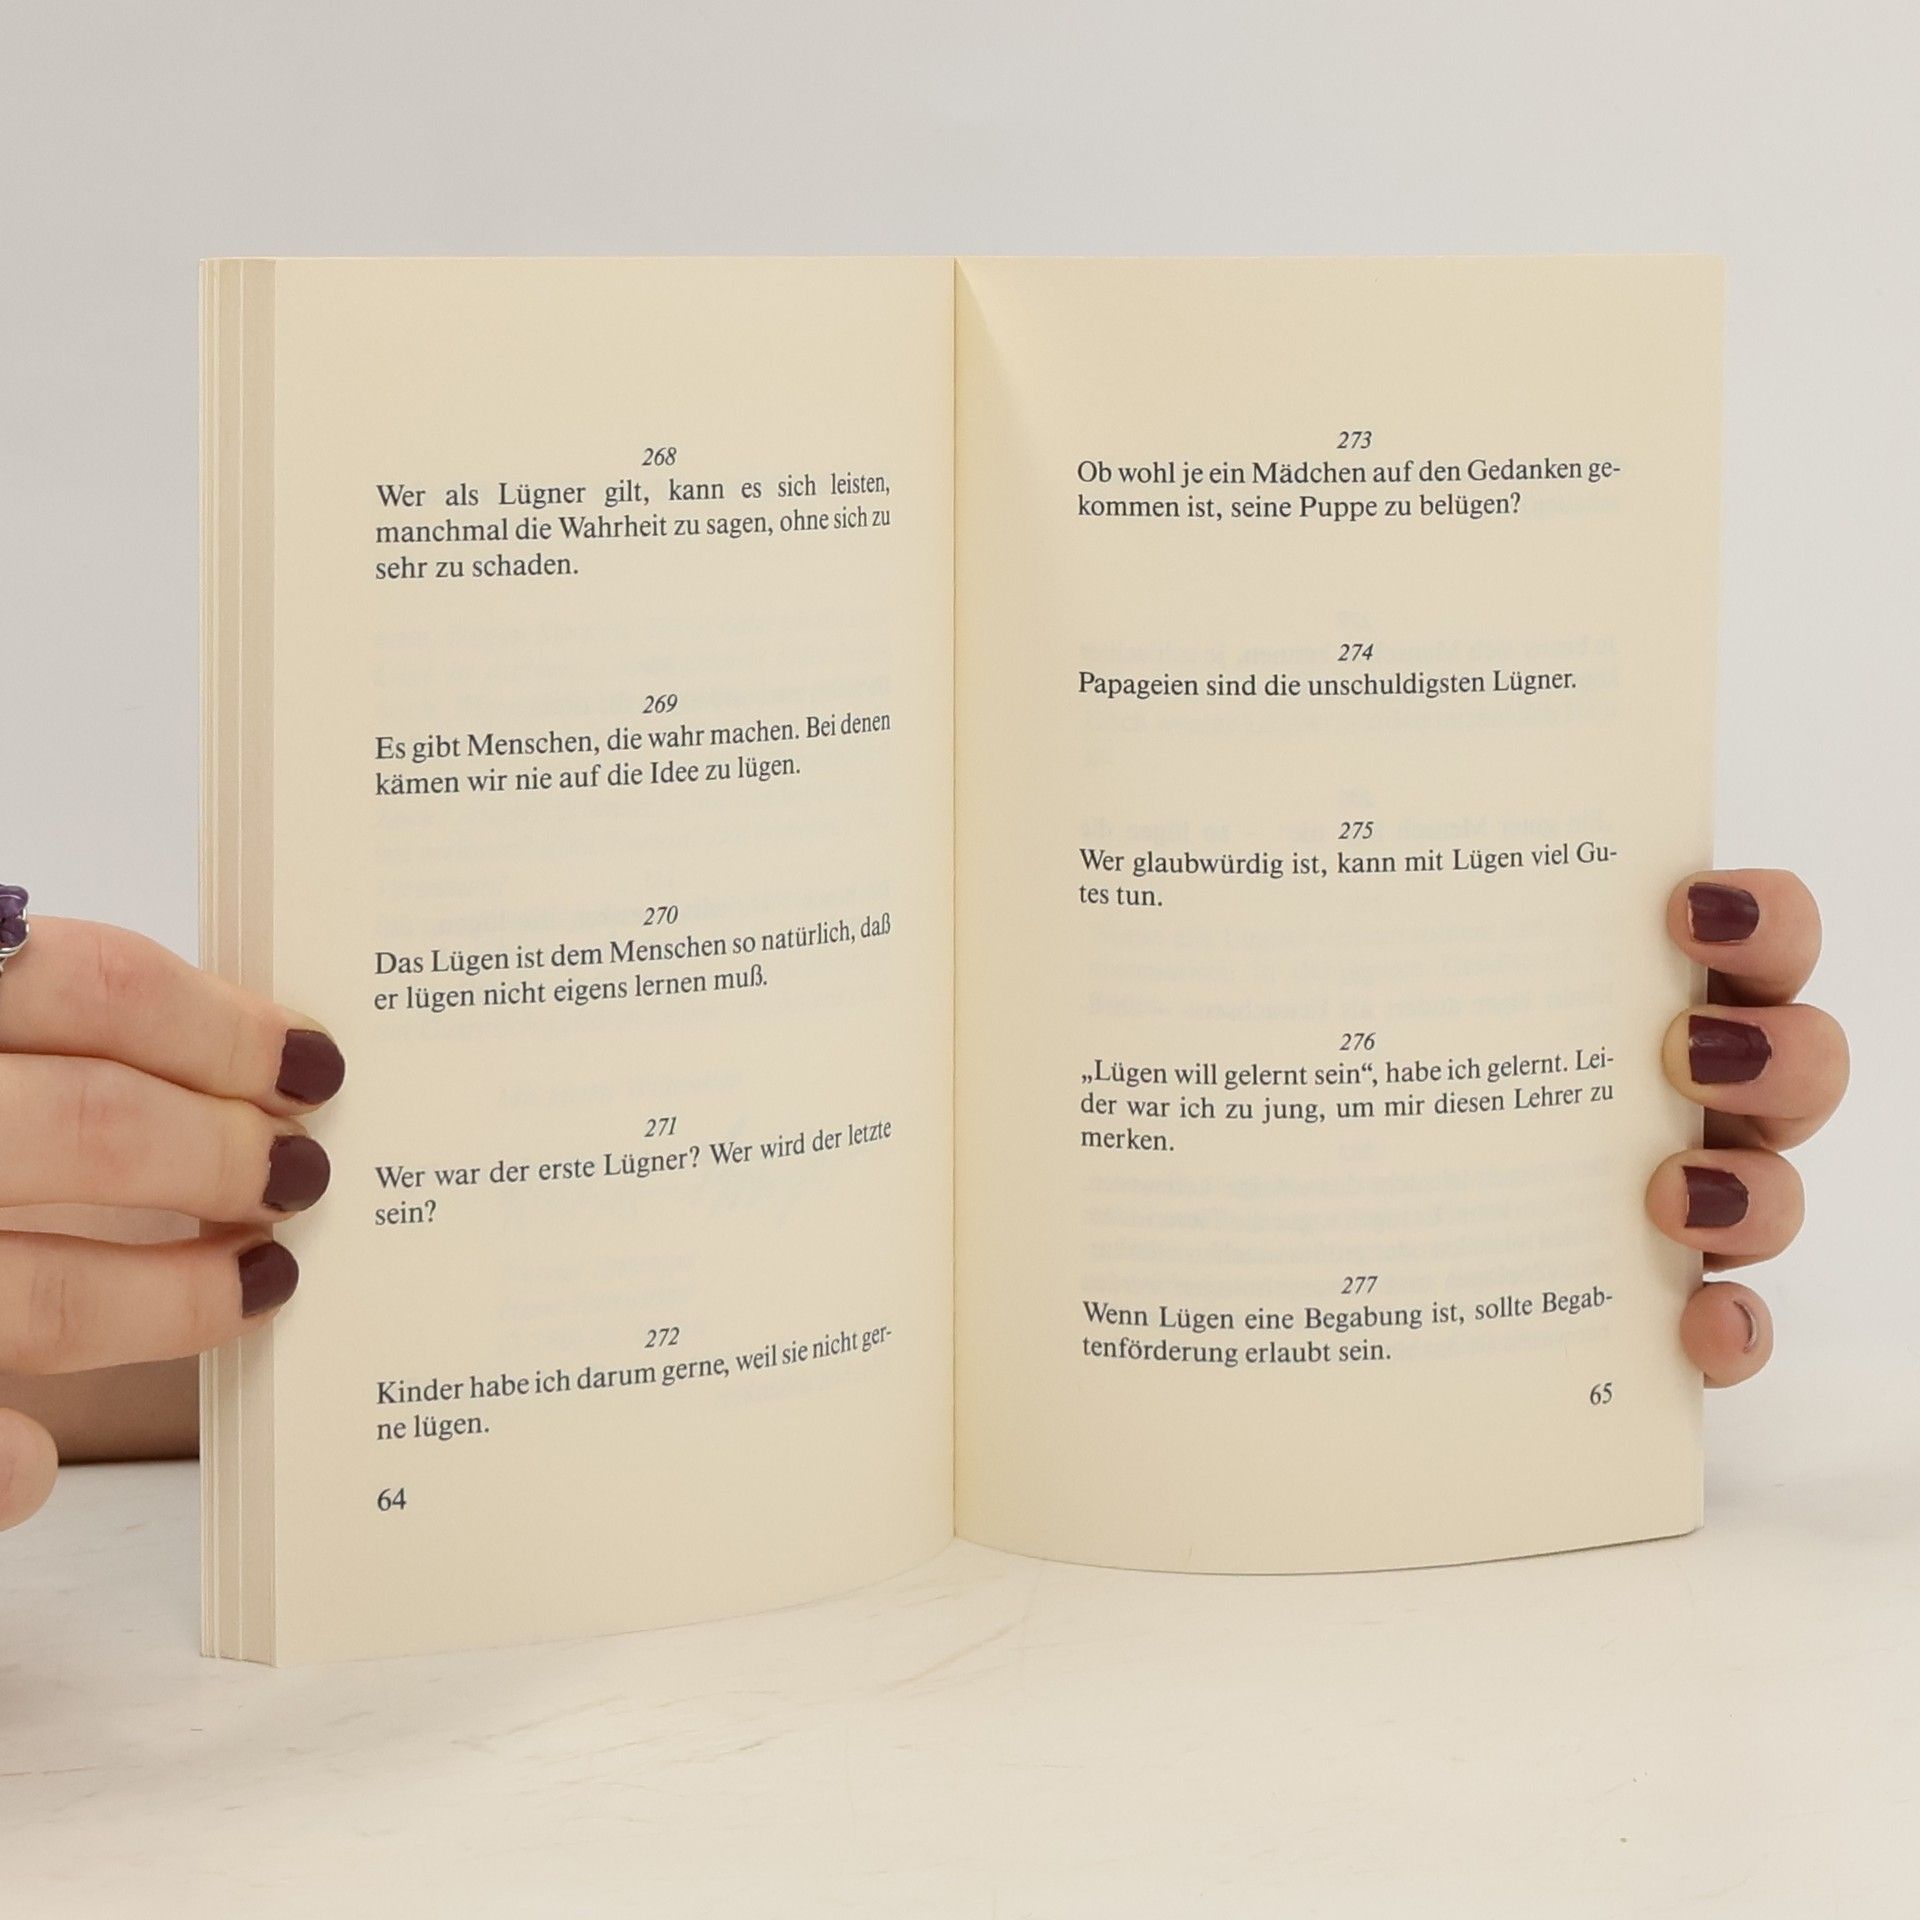 268
Wer als Lügner gilt, kann es sich leisten,
manchmal die Wahrheit zu sagen, ohne sich zu
sehr zu schaden.
269
Es gibt Menschen, die wahr machen. Bei denen
kämen wir nie auf die Idee zu lügen.
270
Das Lügen ist dem Menschen so natürlich, daß
er lügen nicht eigens lernen muß.
271
Wer war der erste Lügner? Wer wird der letzte
sein?
272
Kinder habe ich darum gerne, weil sie nicht ger-
ne lügen.
64
273
Ob wohl je ein Mädchen auf den Gedanken ge-
kommen ist, seine Puppe zu belügen?
274
Papageien sind die unschuldigsten Lügner.
275
Wer glaubwürdig ist, kann mit Lügen viel Gu-
tes tun.
276
„Lügen will gelernt sein“, habe ich gelernt. Lei-
der war ich zu jung, um mir diesen Lehrer zu
merken.
277
Wenn Lügen eine Begabung ist, sollte Begab-
tenförderung erlaubt sein.
65